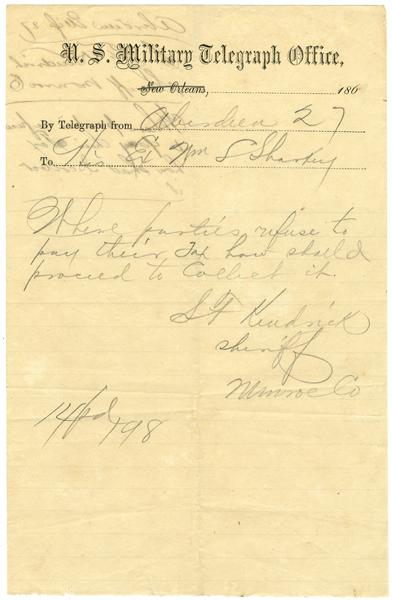 U. S. Military Telegraph Office,
New Orleans, 186
By Telegraph from Aberdeen 27
To His Ex Wm S Sharkey
Where parties refuse to
pay their Tax how shall I
proceed to Collect it.
S F Kendrick
Sheriff
Monroe Co
14 pd 498